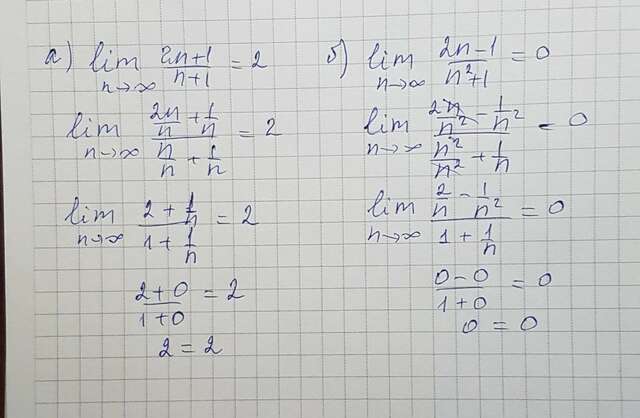 а) lim n→∞ (2n+1)/(n+1) = 2
lim n→∞ (2n/n + 1/n)/(n/n + 1/n) = 2
lim n→∞ (2 + 1/n)/(1 + 1/n) = 2
(2+0)/(1+0) = 2
2 = 2
б) lim n→∞ (2n-1)/(n²+1) = 0
lim n→∞ (2n/n² - 1/n²)/(n²/n² + 1/n) = 0
lim n→∞ (2/n - 1/n²)/(1 + 1/n) = 0
(0-0)/(1+0) = 0
0 = 0